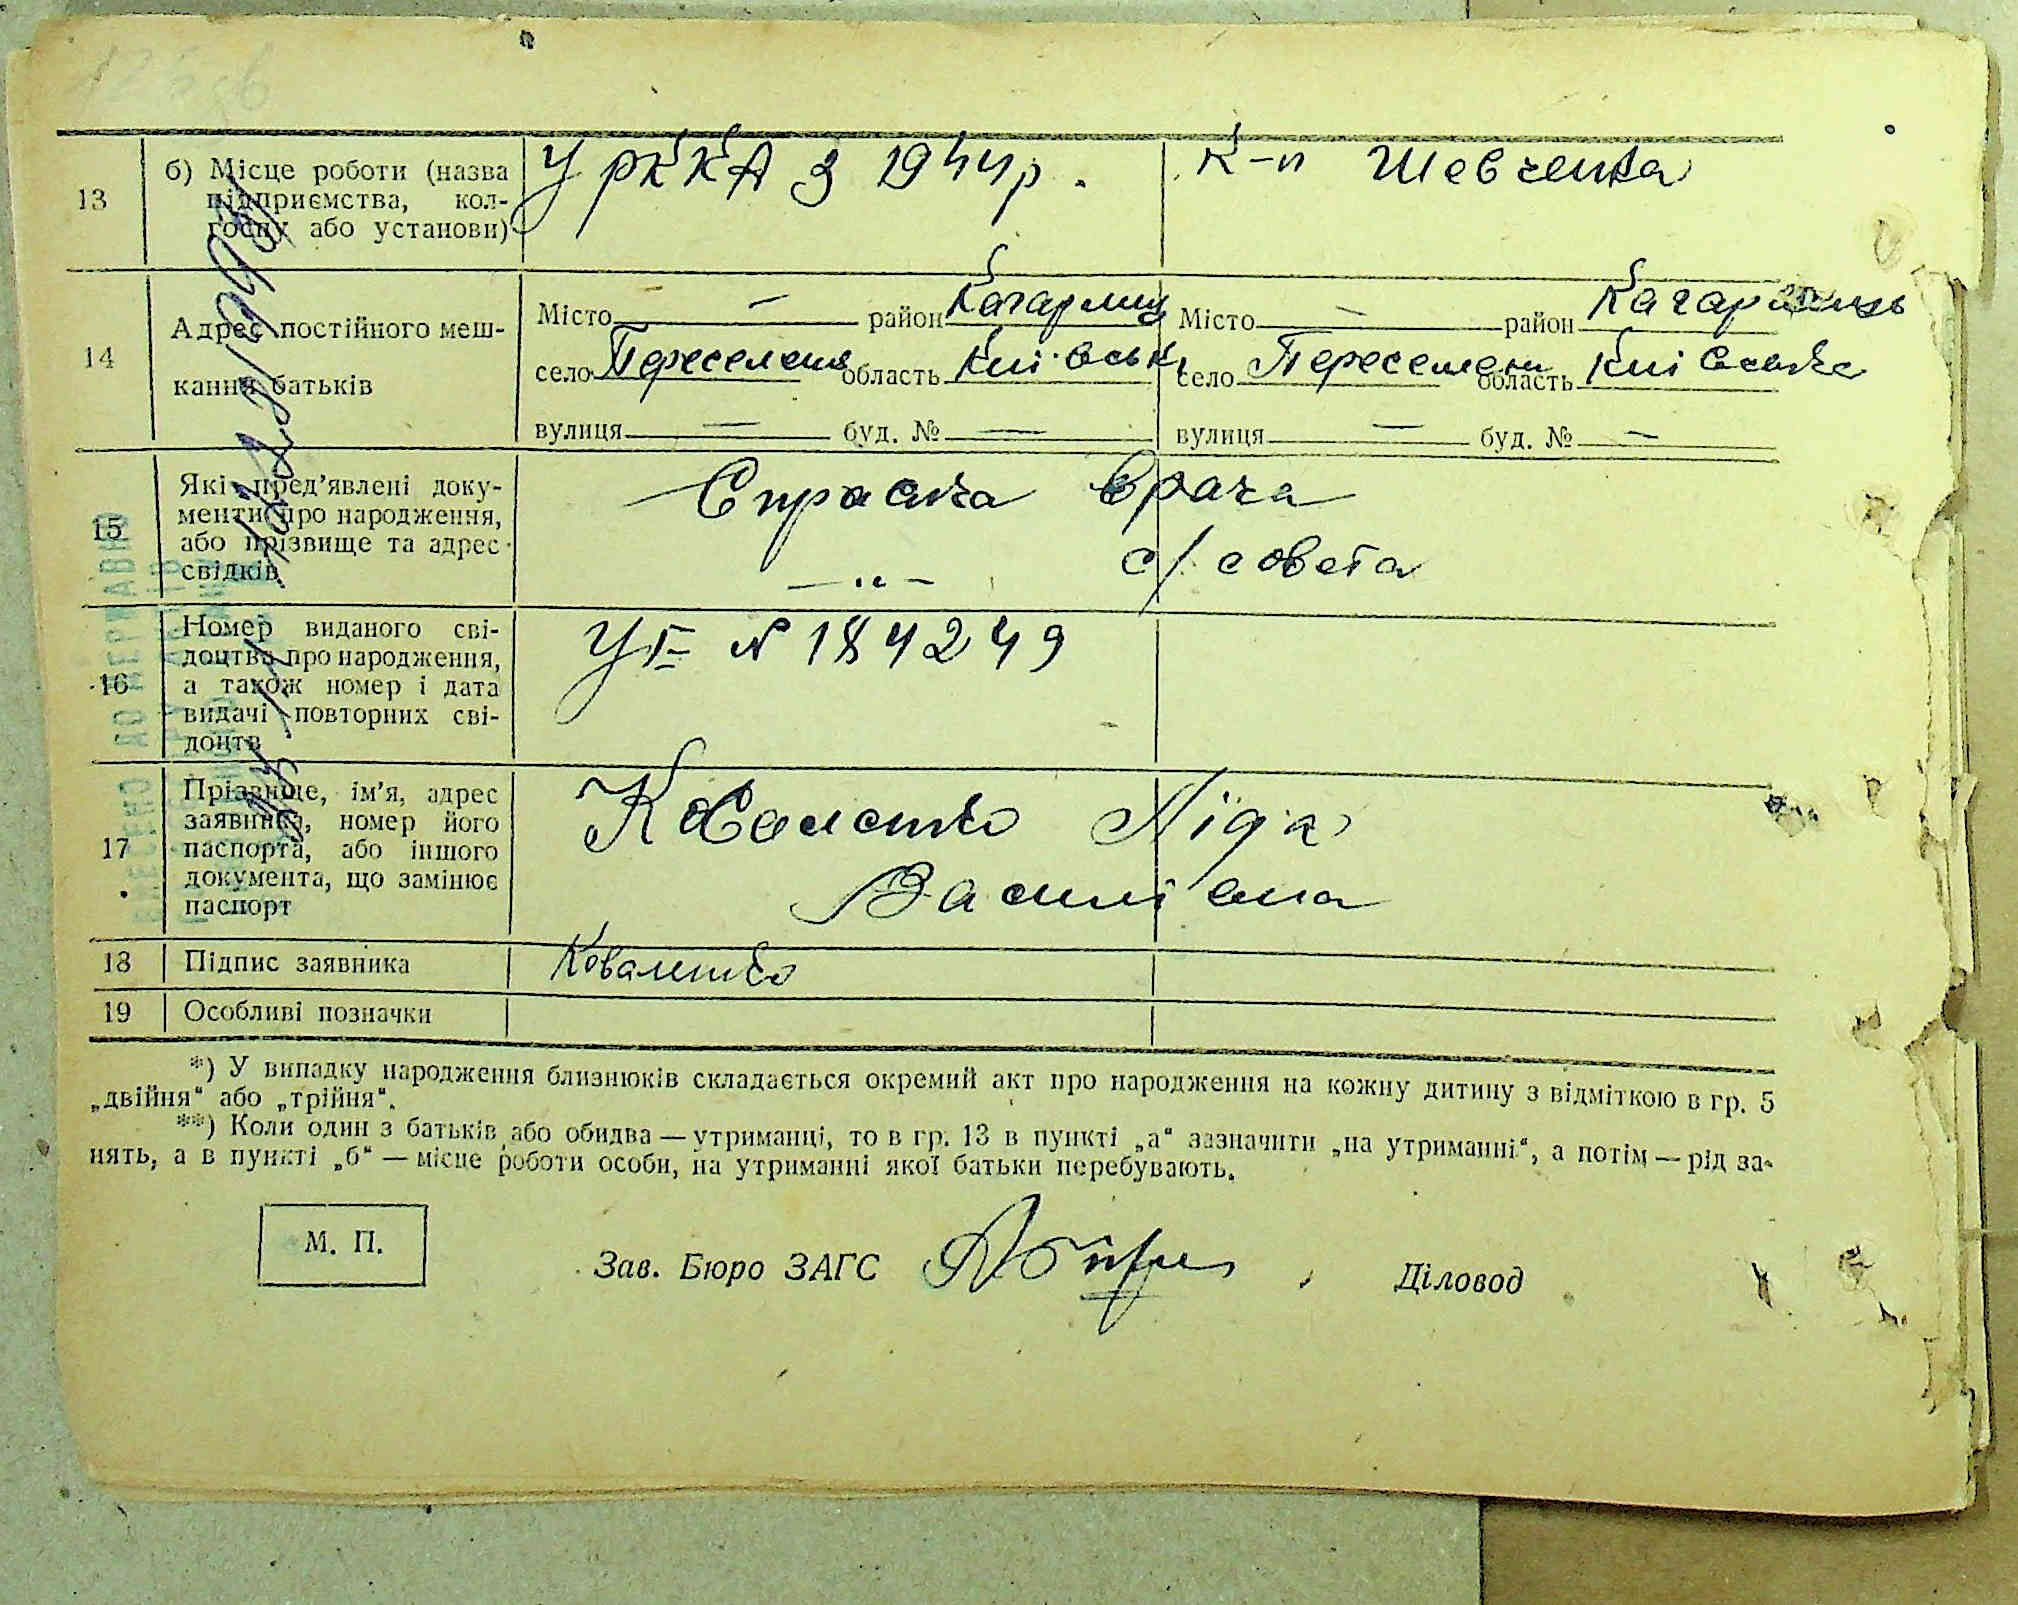 13
б) Місце роботи (назва
підприємства, кол-
госпу або установи)
У РККА з 1944 р.
К-п Шевченка
14
Адрес постійного меш-
кання батьків
Місто — район Кагарлиц
село Переселення область Київськ
вулиця — буд. № —
Місто — район Кагарлицьк
село Переселен область Київська
вулиця — буд. № —
15
Які пред’явлені доку-
менти про народження,
або прізвище та адрес
свідків
Справка врача
—„— с/совета
16
Номер виданого сві-
доцтва про народження,
а також номер і дата
видачі повторних сві-
доцтв
УГ № 184249
17
Прізвище, ім’я, адрес
заявника, номер його
паспорта, або іншого
документа, що замінює
паспорт
Коваленко Ліда
Василівна
18
Підпис заявника
Коваленко
19
Особливі позначки
*) У випадку народження близнюків складається окремий акт про народження на кожну дитину з відміткою в гр. 5
„двійня“ або „трійня“.
**) Коли один з батьків або обидва — утриманці, то в гр. 13 в пункті „а“ зазначити „на утриманні“, а потім — рід за-
нять, а в пункті „б“ — місце роботи особи, на утриманні якої батьки перебувають.
М. П.
Зав. Бюро ЗАГС
Діловод